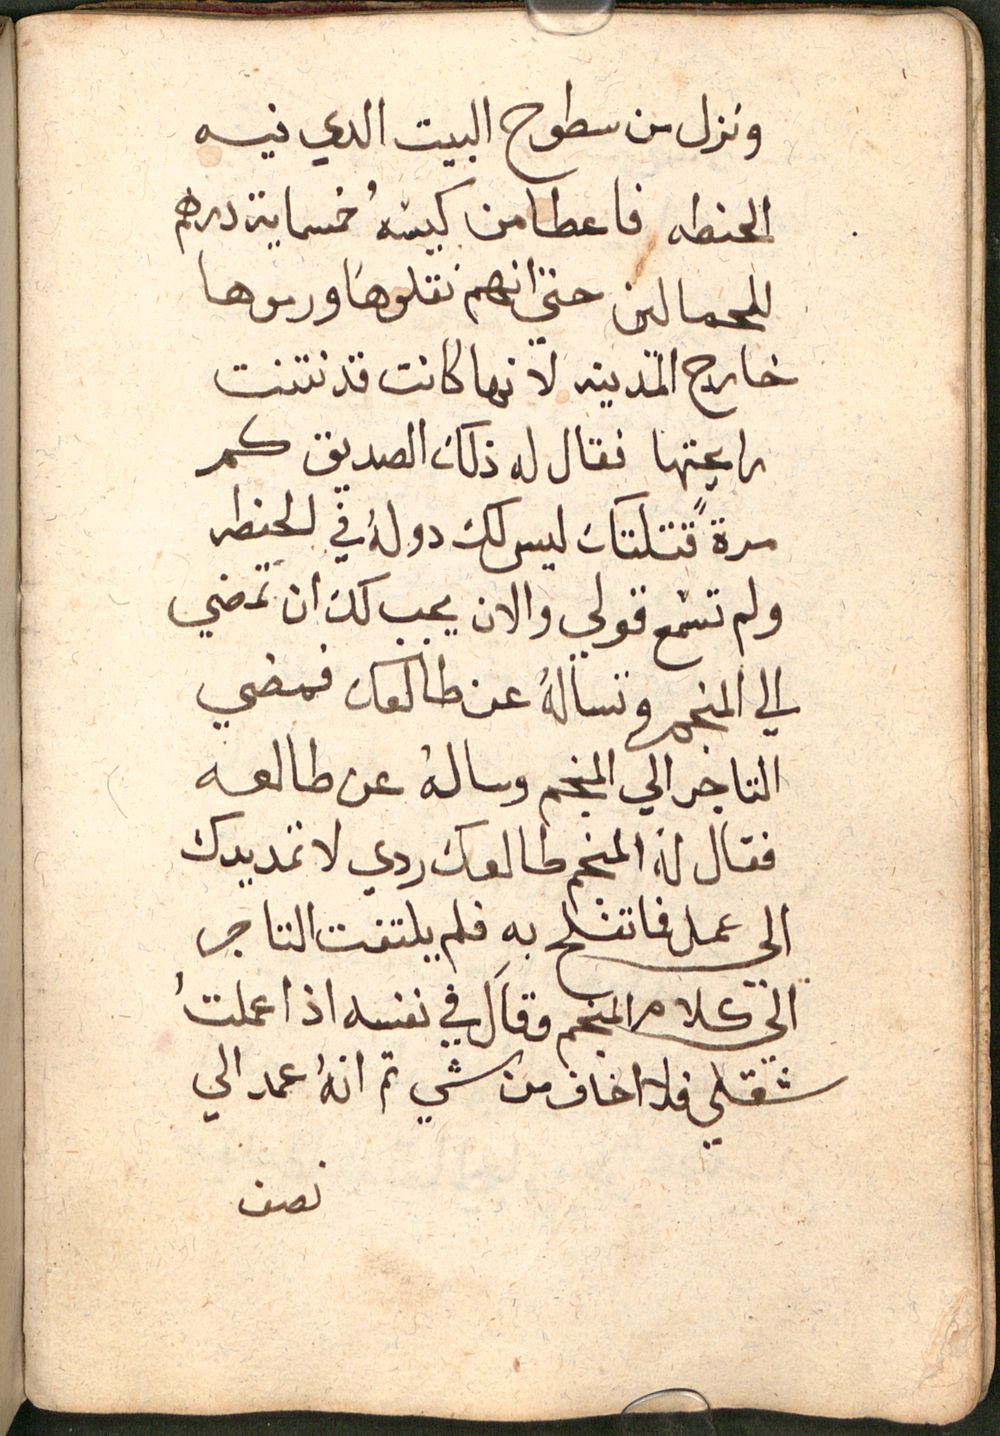 ونزل من سطوح البيت الدي فيه
الحنطه فاعطا من كيسهُ خمسماية درهم
للحمالين حتي انهم نقلوها ورموها
خارج المدينه لانها كانت قد نتنت
رايحتها فقال له ذلك الصديق كم
مرةً قتلتك ليس لك دولهُ في الحنطه
ولم تسمع قولي والان يجب لك ان تمضي
الي المنجم وتسالهُ عن طالعك فمضي
التاجر الي المنجم وسالهُ عن طالعه
فقال لهُ المنجم طالعك ردي لا تمد يدك
الي عمل فاتفلح به فلم يلتفت التاجر
الي كلام المنجم وقال في نفسه اذا عملتُ
شغلي فلا اخاف من شي تم انهُ عمد الي
نصف